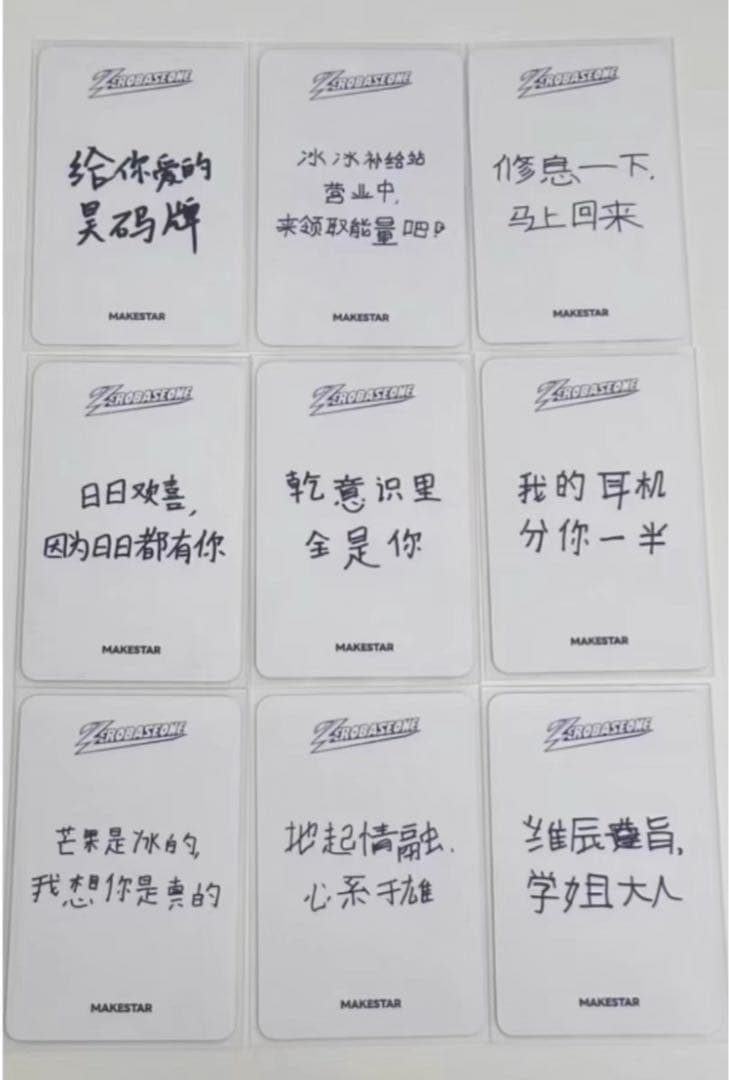 ZEROBASEONE
给你爱的
昊码牌
MAKESTAR
ZEROBASEONE
冰冰补给站
营业中,
来领取能量吧!
MAKESTAR
ZEROBASEONE
修息一下,
马上回来
MAKESTAR
ZEROBASEONE
日日欢喜,
因为日日都有你
MAKESTAR
ZEROBASEONE
乾意识里
全是你
MAKESTAR
ZEROBASEONE
我的耳机
分你一半
MAKESTAR
ZEROBASEONE
芒果是冰的,
我想你是真的
MAKESTAR
ZEROBASEONE
地起情融,
心系于雄
MAKESTAR
ZEROBASEONE
辰旨,
学姐大人
MAKESTAR